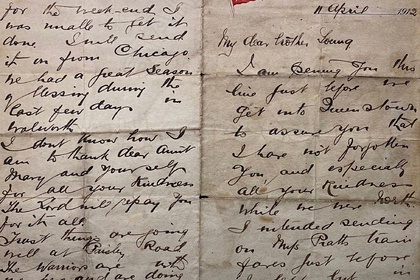 11 April 1912
My dear Brother Young
I am penning you this
line just before we
get into Queenstown
to assure you that
I have not forgotten
you and especially
all your kindness
while we were North
I intended sending
on Mrs Pratts train
fares just before
I left but in
for the week-end I
was unable to get it
done. I will send
it on from Chicago
We had a great season
of blessing during the
last few days in
Walworth
I don't know how I
am to thank dear Aunt
Mary and yourself
for all your kindness
The Lord will repay you
for it all
Trust things are going
well at Paisley Road
The Warriors are with
and are doing